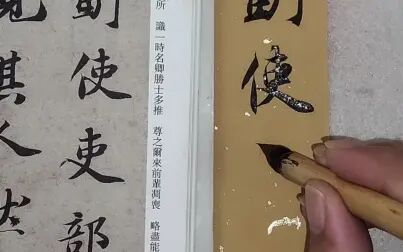 劃使
所識一時名卿勝士多推尊之爾來前輩凋喪略盡能
劃使吏部
覘其人於